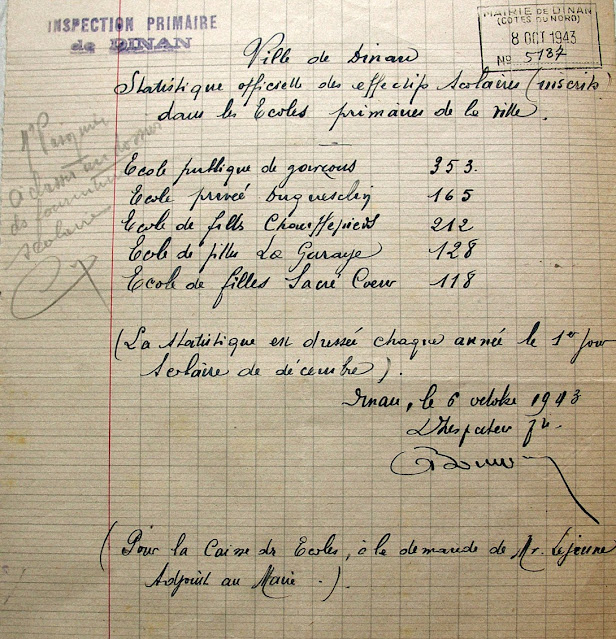 INSPECTION PRIMAIRE
de DINAN
MAIRIE DE DINAN
(CÔTES DU NORD)
8 OCT 1943
No 5137
Ville de Dinan
Statistique officielle des effectifs scolaires (inscrits
dans les Ecoles primaires de la ville.
Mr
à classer au dossier
des fournitures
scolaires
Ecole publique de garçons 353.
Ecole privée Duguesclin 165
Ecole de filles Chauffepieds 212
Ecole de filles La Garaye 128
Ecole de filles Sacré Coeur 118
(La statistique est dressée chaque année le 1er jour
scolaire de décembre).
Dinan, le 6 octobre 1943
L'Inspecteur Pre.
(Pour la Caisse des Ecoles, à la demande de Mr. Lejeune
Adjoint au Maire.)